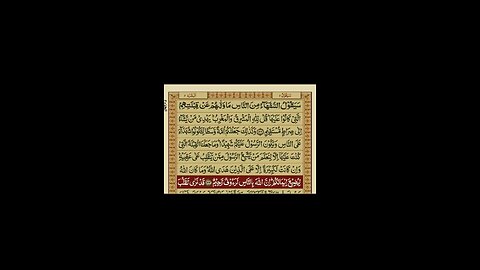 سَيَقُوْلُ السُّفَهَآءُ مِنَ النَّاسِ مَا وَلّٰىهُمْ عَنْ قِبْلَتِهِمُ
الَّتِيْ كَانُوْا عَلَيْهَا قُلْ لِّلّٰهِ الْمَشْرِقُ وَالْمَغْرِبُ يَهْدِيْ مَنْ يَّشَآءُ
اِلٰى صِرَاطٍ مُّسْتَقِيْمٍ وَكَذٰلِكَ جَعَلْنٰكُمْ اُمَّةً وَّسَطًا لِّتَكُوْنُوْا شُهَدَآءَ
عَلَى النَّاسِ وَيَكُوْنَ الرَّسُوْلُ عَلَيْكُمْ شَهِيْدًا وَمَا جَعَلْنَا الْقِبْلَةَ الَّتِيْ
كُنْتَ عَلَيْهَآ اِلَّا لِنَعْلَمَ مَنْ يَّتَّبِعُ الرَّسُوْلَ مِمَّنْ يَّنْقَلِبُ عَلٰى عَقِبَيْهِ
وَاِنْ كَانَتْ لَكَبِيْرَةً اِلَّا عَلَى الَّذِيْنَ هَدَى اللّٰهُ وَمَا كَانَ اللّٰهُ
لِيُضِيْعَ اِيْمَانَكُمْ اِنَّ اللّٰهَ بِالنَّاسِ لَرَءُوْفٌ رَّحِيْمٌ قَدْ نَرٰى تَقَلُّبَ